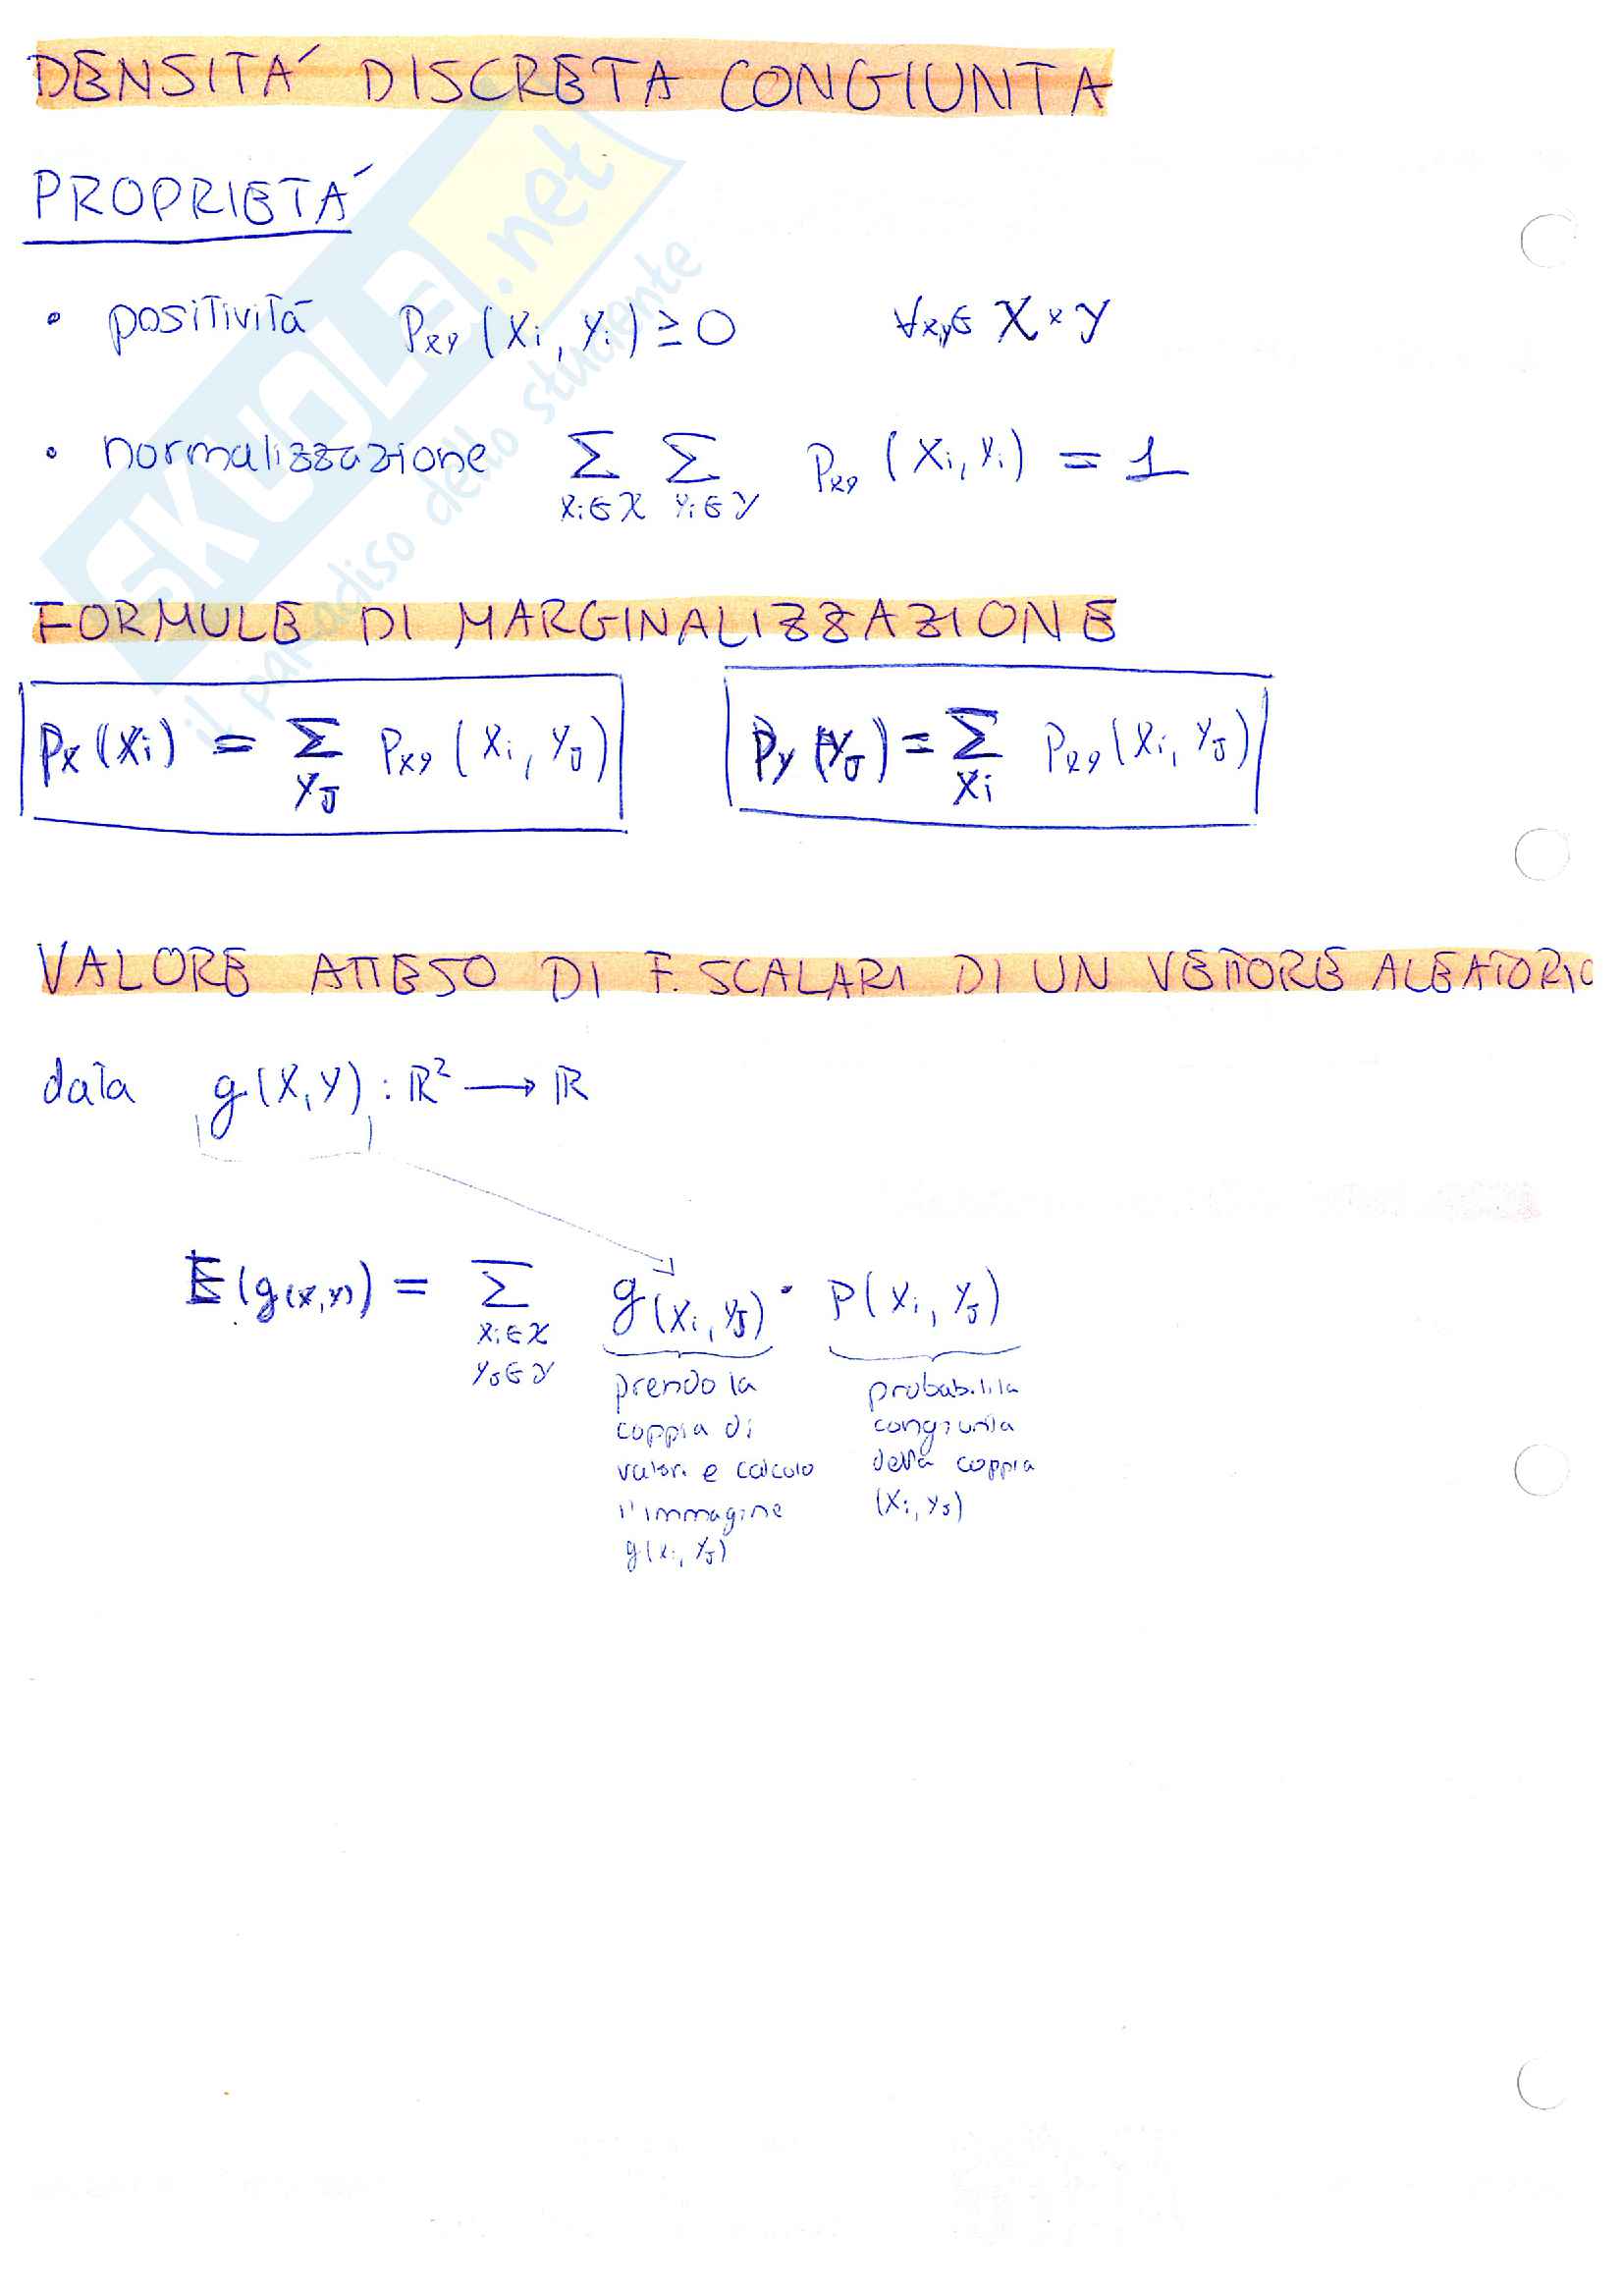 DENSITÀ DISCRETA CONGIUNTA
PROPRIETÀ
• positività P_XY (x_i, y_i) ≥ 0 ∀x,y ∈ 𝒳 × 𝒴
• normalizzazione Σ_{x_i∈𝒳} Σ_{y_i∈𝒴} P_XY (x_i, y_i) = 1
FORMULE DI MARGINALIZZAZIONE
P_X (x_i) = Σ_{y_J} P_XY (x_i, y_J) P_Y (y_J) = Σ_{x_i} P_XY (x_i, y_J)
VALORE ATTESO DI F. SCALARI DI UN VETTORE ALEATORIO
data g(X,Y) : ℝ² → ℝ
E(g(X,Y)) = Σ_{x_i∈𝒳 y_J∈𝒴} g(x_i, y_J) · P(x_i, y_J)
prendo la
coppia di
valori e calcolo
l'immagine
g(x_i, y_J)
probabilità
congiunta
della coppia
(x_i, y_J)
SKUOLA.net
il paradiso dello studente